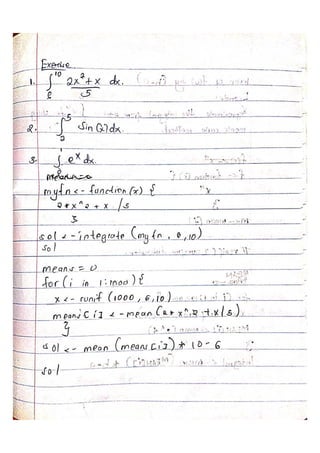 Exercise
1. ∫ 10 2x²+x dx.
5
2. ∫ 5 Sin(x)dx.
2
3. ∫ eˣ dx.
myfn <- function(x) {
2*x^2 + x /5
}
sol <- integrate (myfn, 6, 10)
sol
means = 0
for (i in 1:1000) {
x <- runif (1000, 6, 10)
means[i] <- mean (2* x^2 + x/5)
}
sol <- mean (means[i]) * 10-6
sol